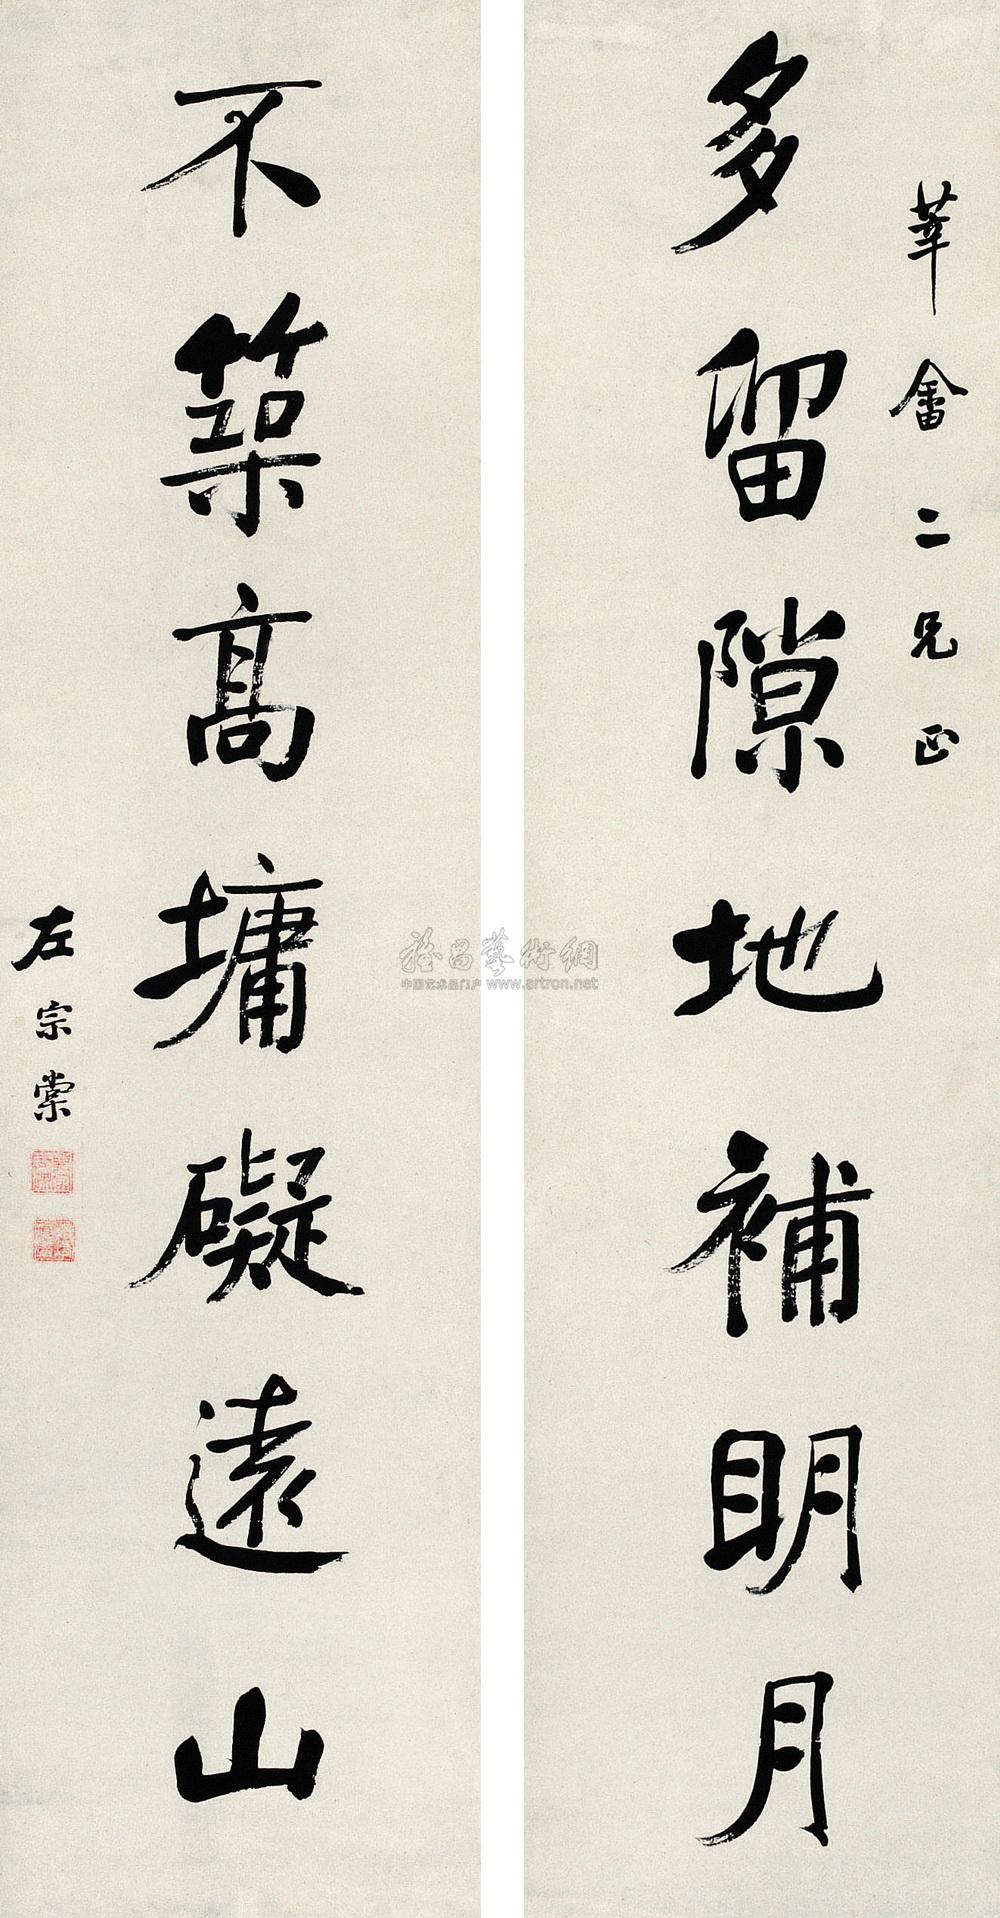 華畬二兄正
多留隙地補明月
不築高墉礙遠山
左宗棠
雅昌藝術網
中国艺术品门户 www.artron.net